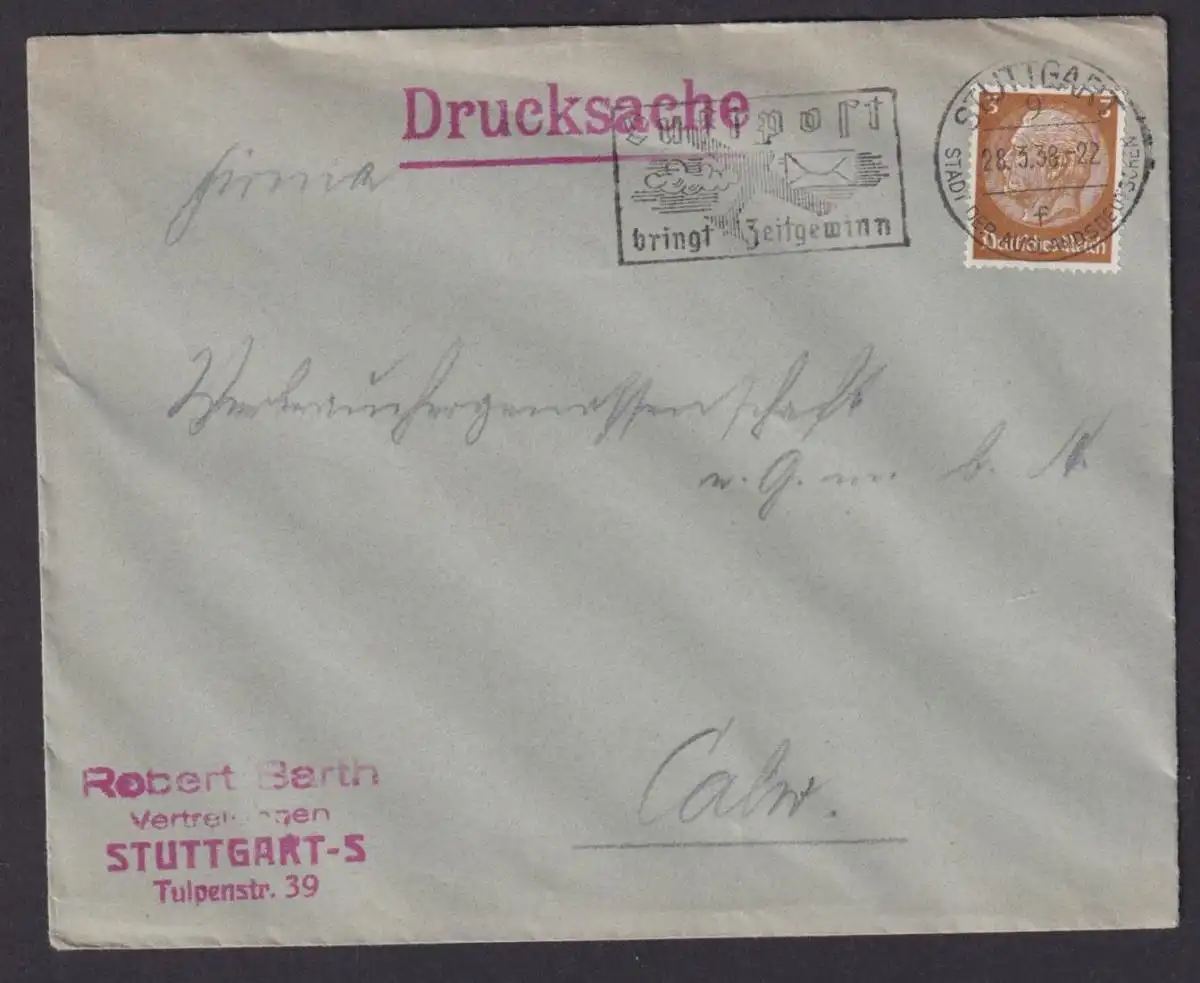 Drucksache
Luftpost
bringt Zeitgewinn
STUTTGART
9
28.3.38-22
f
STADT DER AUSLANDSDEUTSCHEN
3 3
Deutsches Reich
Firma
Verbrauchergenossenschaft
e. G. m. b. H.
Calw.
Robert Barth
Vertretungen
STUTTGART-S
Tulpenstr. 39